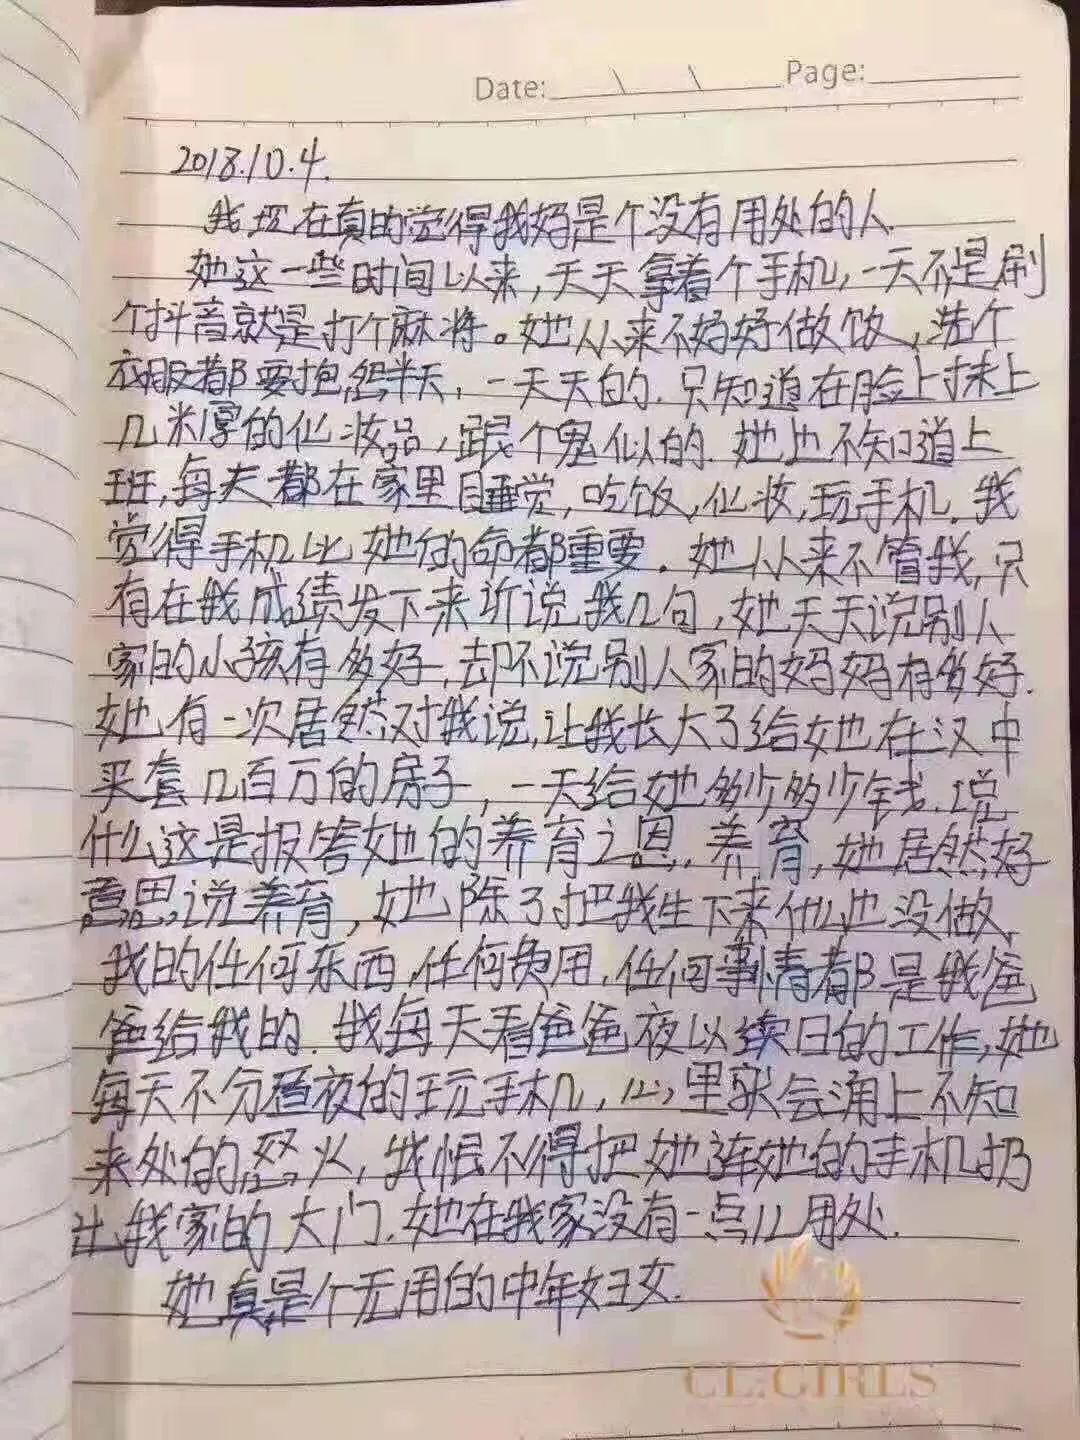 Date: \ \ Page:
2018.10.4.
我现在真的觉得我妈是个没有用处的人
她这一些时间以来，天天拿着个手机，一天不是刷
个抖音就是打个麻将。她从来不好好做饭，洗个
衣服都要抱怨半天，一天天的.只知道在脸上抹上
几米厚的化妆品，跟个鬼似的.她也不知道上
班，每天都在家里睡觉，吃饭，化妆，玩手机.我
觉得手机比她的命都重要.她从来不管我，只
有在我成绩发下来听说我几句，她天天说别人
家的小孩有多好，却不说别人家的妈妈有多好.
她有一次居然对我说，让我长大了给她在汉中
买套几百万的房子，一天给她多少多少钱.说
什么这是报答她的养育之恩.养育，她居然好
意思说养育，她除了把我生下来什么也没做，
我的任何东西，任何费用，任何事情都是我爸
爸给我的.我每天看爸爸夜以续日的工作，她
每天不分昼夜的玩手机，心里就会涌上不知
来处的怒火，我恨不得把她连她的手机扔
出我家的大门.她在我家没有一点儿用处.
她真是个无用的中年妇女.
CL:GIRLS